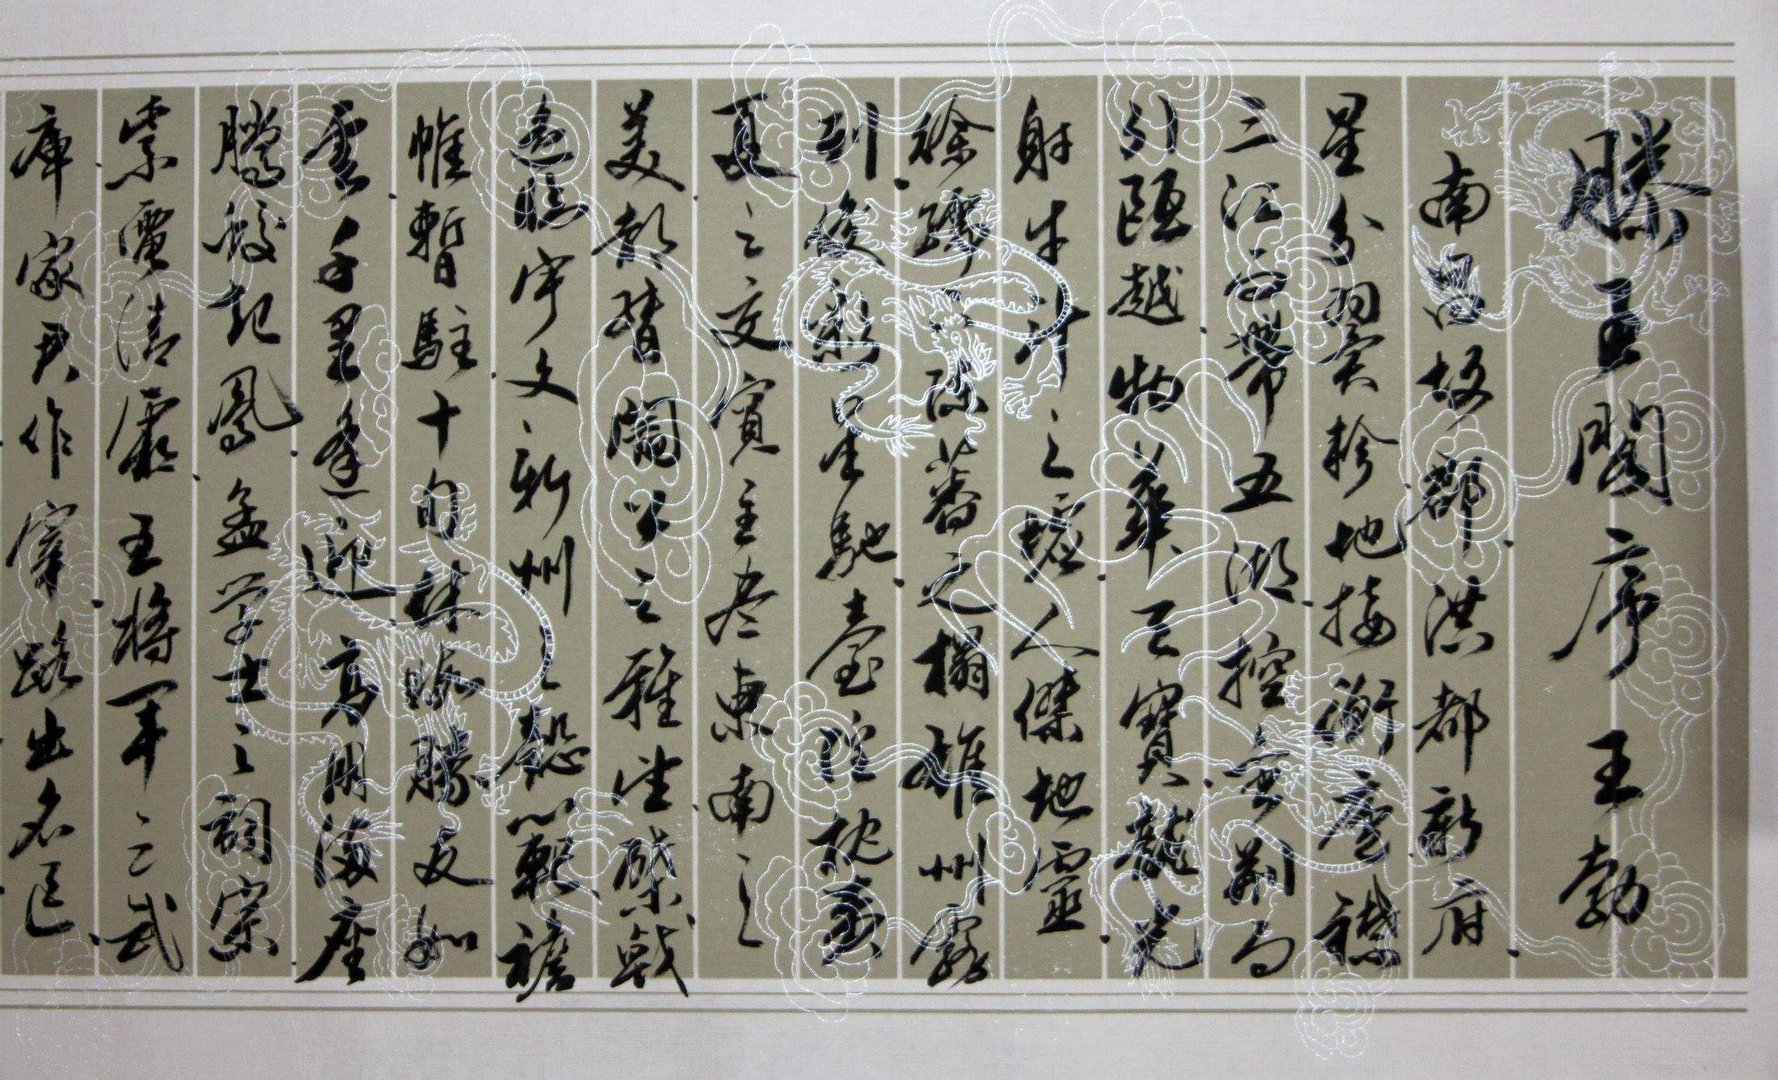 滕王閣序 王勃
南昌故都洪都新府
星分翼軫地接衡廬襟
三江而帶五湖控蠻荊而
引甌越物華天寶龍光
射牛斗之墟人傑地靈
徐孺下陳蕃之榻雄州霧
列俊彩星馳臺隍枕夷
夏之交賓主盡東南之
美都督閻公之雅望棨戟
遙臨宇文新州之懿範襜
帷暫駐十旬休暇勝友如
雲千里逢迎高朋滿座
騰蛟起鳳孟學士之詞宗
紫電清霜王將軍之武
庫家君作宰路出名區